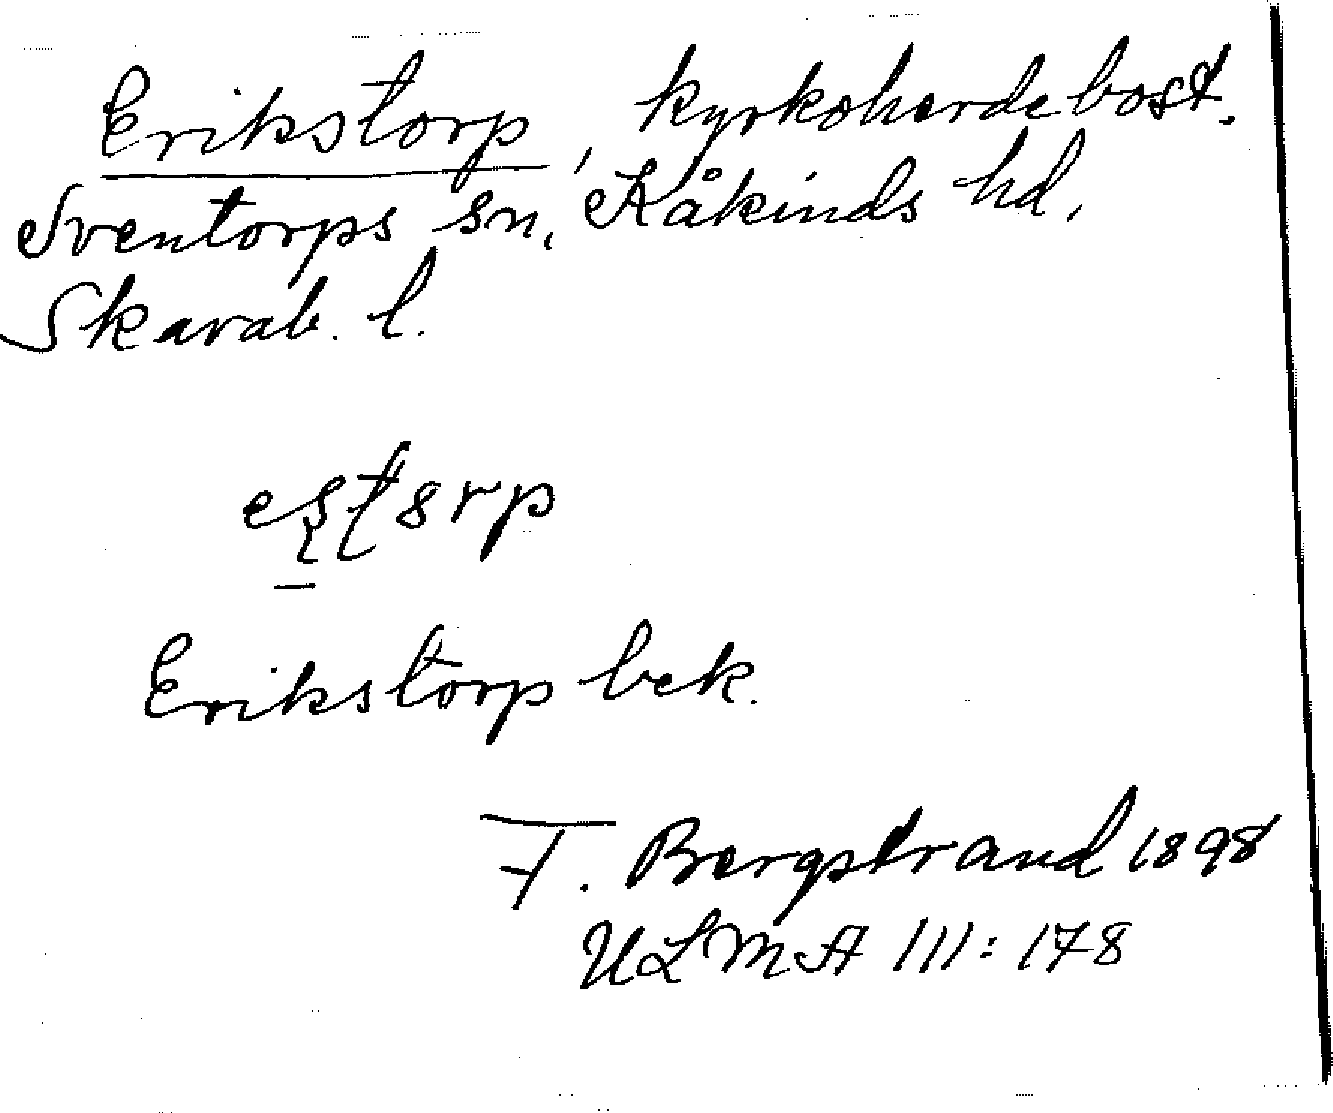 Erikstorp, kyrkoherdebost.
Sventorps sn, Kåkinds hd,
Skarab. l.
Erikstorp bek.
F. Bergstrand 1898
ULMA III: 178